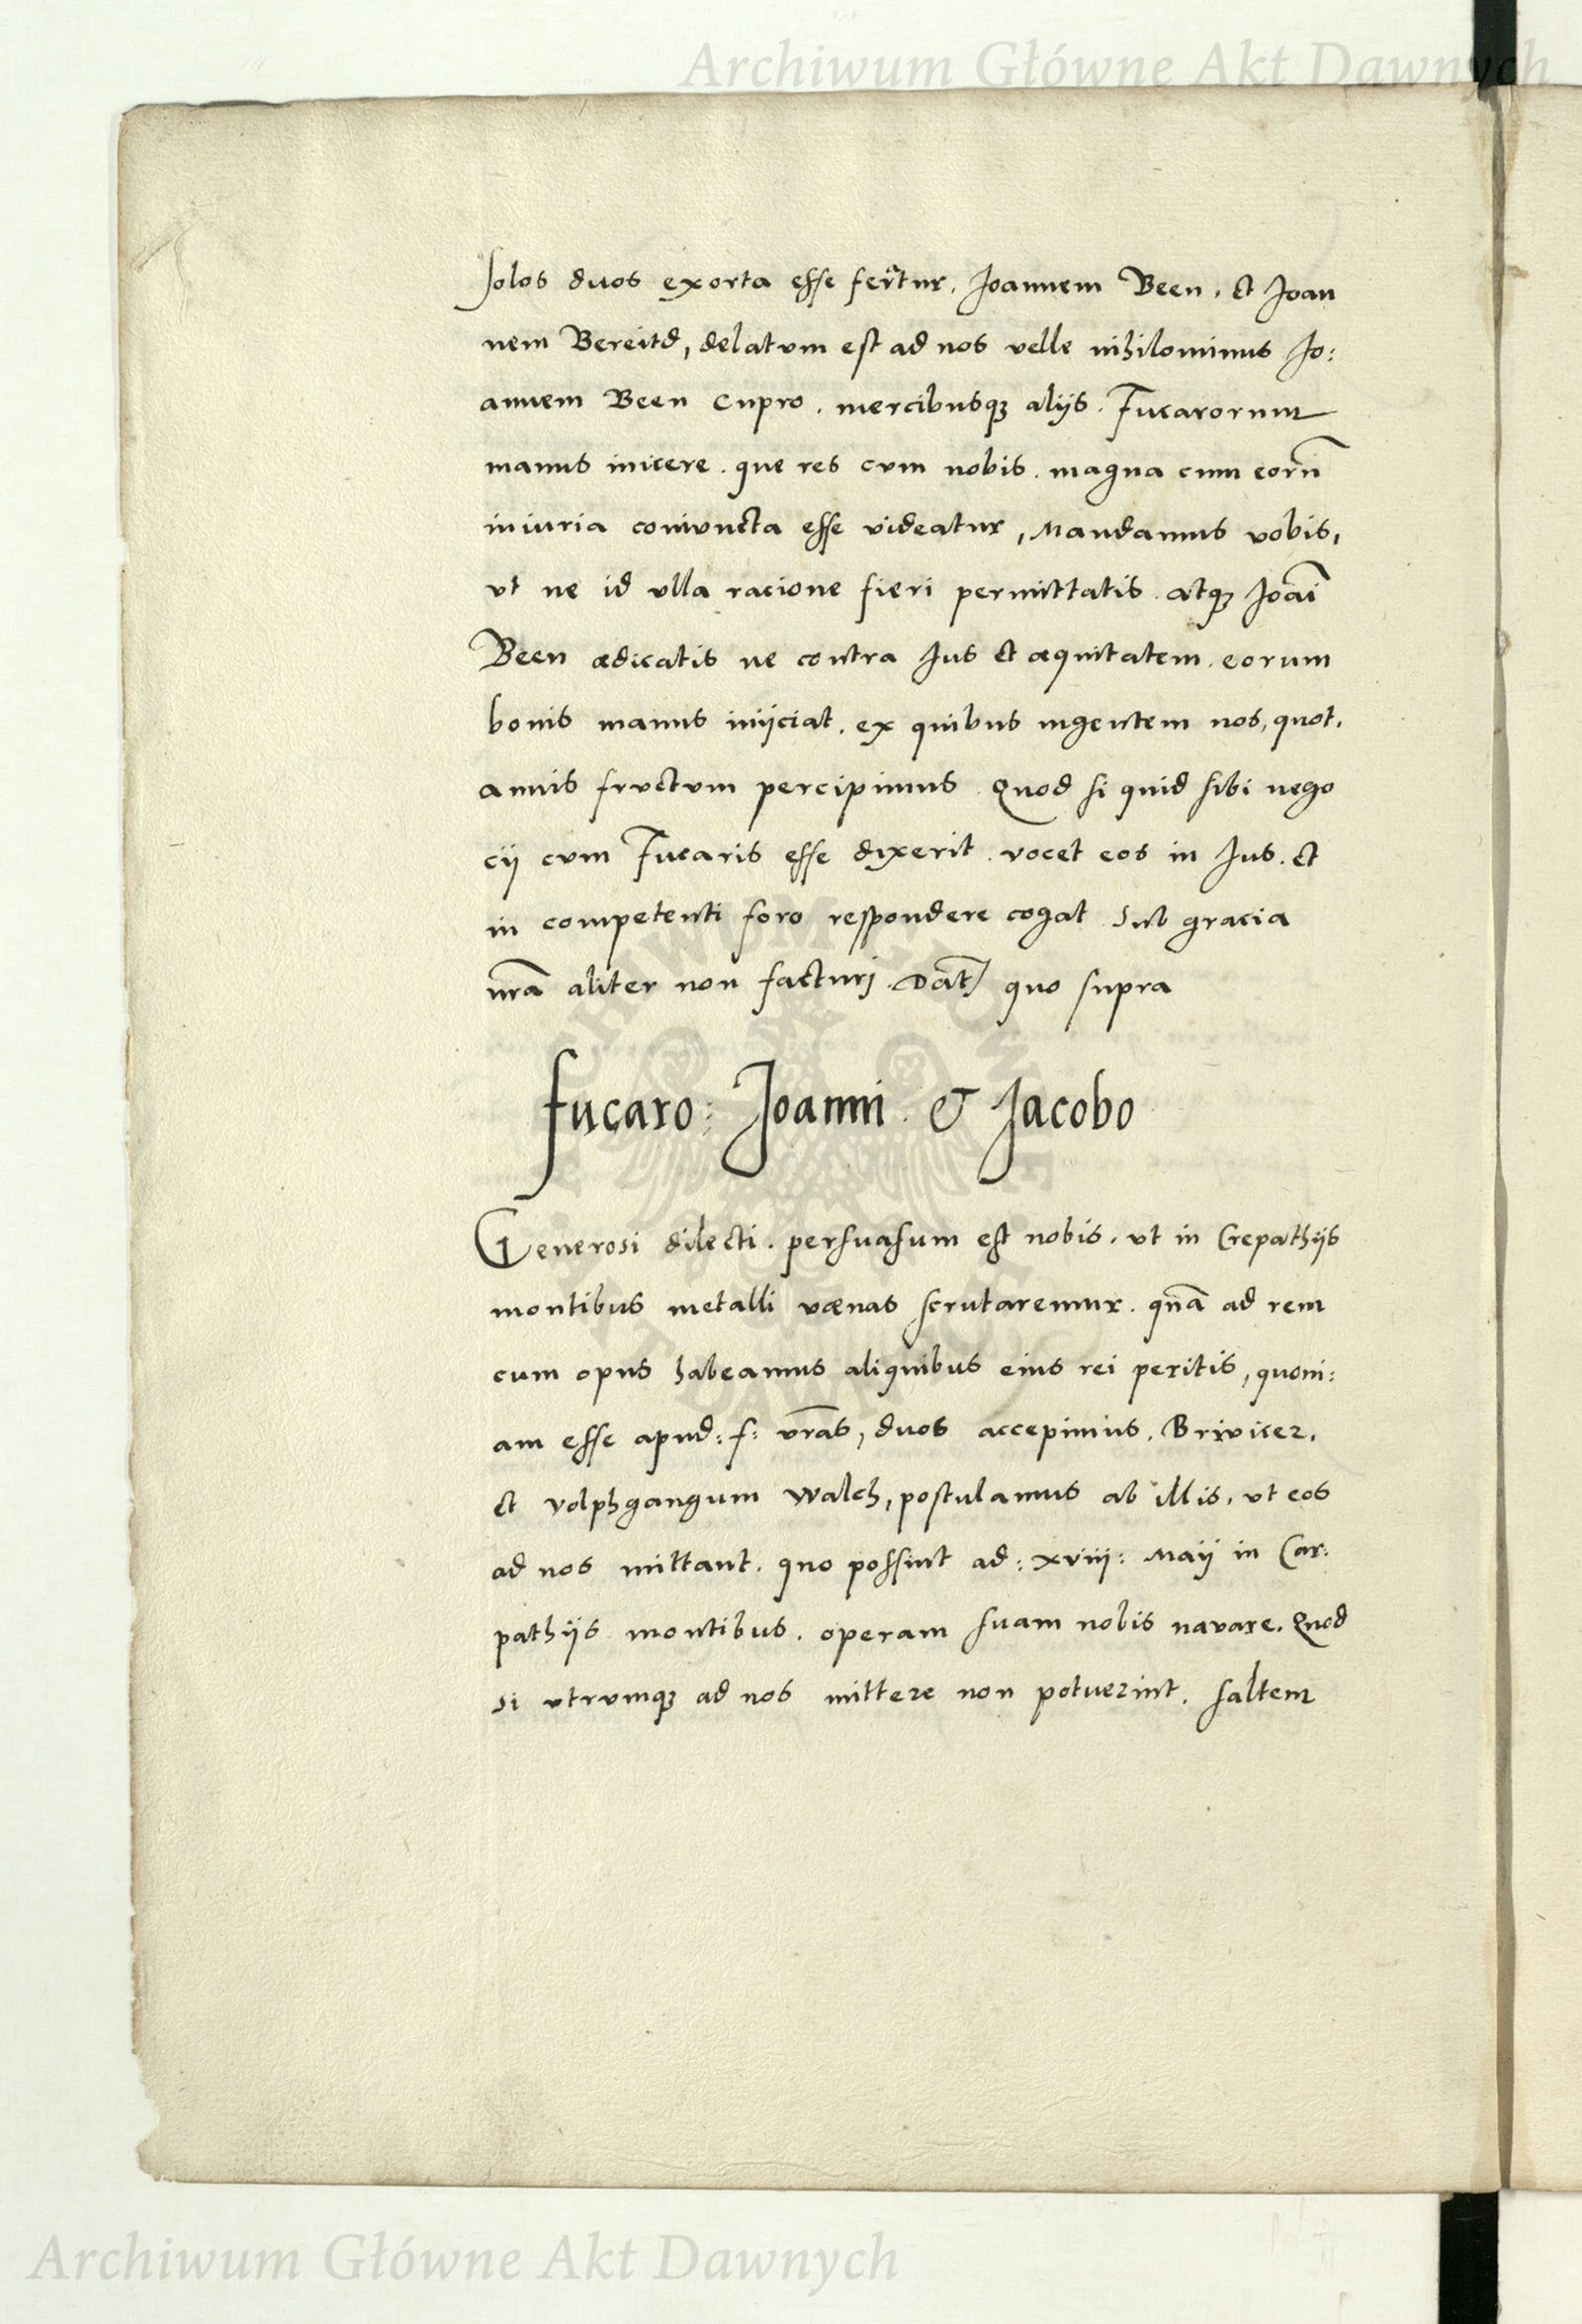 Archiwum Główne Akt Dawnych
solos duos exorta esse fertur. Joannem Been. et Joan
nem Bereitd, delatum est ad nos velle nihilominus Jo:
annem Been Cupro. mercibusqꝫ alijs. Fucarorum
manus inicere. que res cum nobis. magna cum eorū
iniuria coniuncta esse videatur, Mandamus vobis,
vt ne id vlla racione fieri permittatis. atqꝫ Joāi
Been ædicatis ne contra Jus et æquitatem. eorum
bonis manus inijciat. ex quibus ingentem nos, quot.
annis fructum percipimus. Quod si quid sibi nego
cij cum Fucaris esse dixerit. vocet eos in Jus. et
in competenti foro respondere cogat. Sub gracia
nrā aliter non facturj. Dat̄ quo supra
Fucaro: Joanni. & Jacobo
Generosi dilecti. persuasum est nobis. vt in Crepathijs
montibus metalli vænas scrutaremur. qnā ad rem
cum opus habeamus aliquibus eius rei peritis, quoni:
am esse apud: f: vrās, duos accepimus. Brivicer.
et volphgangum walch, postulamus ab illis. vt eos
ad nos mittant. quo possint ad: xviij: Maij in Car:
pathijs montibus. operam suam nobis navare. Quod
si vtrumqꝫ ad nos mittere non potuerint. saltem
Archiwum Główne Akt Dawnych